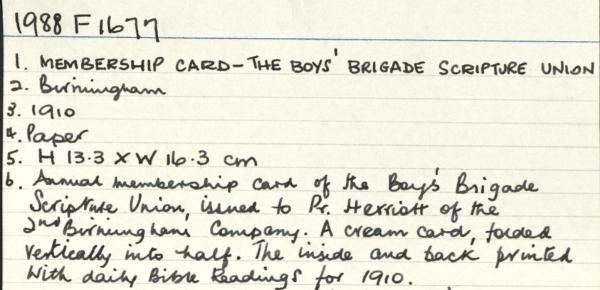 1988 F 1677
1. MEMBERSHIP CARD-THE BOYS' BRIGADE SCRIPTURE UNION
2. Birmingham
3. 1910
4. Paper
5. H 13.3 X W 16.3 cm
6. Annual membership card of the Boy's Brigade
Scripture Union, issued to Pr. Herriott of the
2nd Birmingham Company. A cream card, folded
vertically into half. The inside and back printed
with daily Bible Readings for 1910.